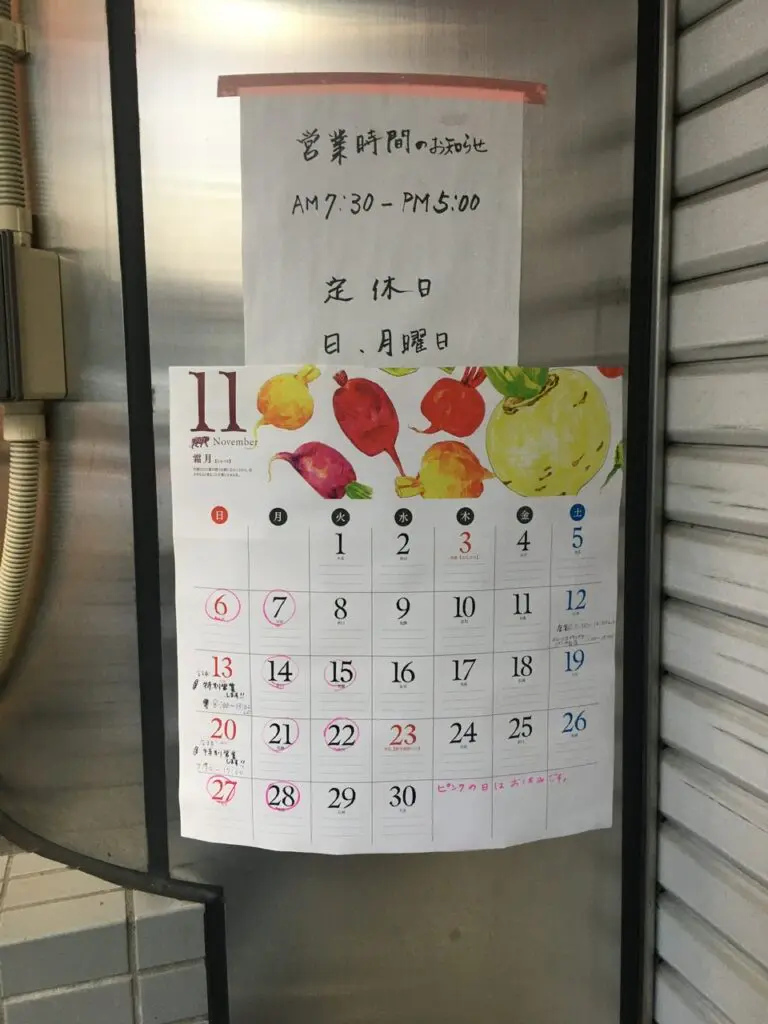 営業時間のお知らせ
AM 7:30 - PM 5:00
定休日
日、月曜日
11
November
霜月
日 月 火 水 木 金 土
1 2 3 4 5
6 7 8 9 10 11 12
13 14 15 16 17 18 19
特別営業
します!!
20 21 22 23 24 25 26
特別営業
します!!
27 28 29 30
ピンクの日はお休みです。